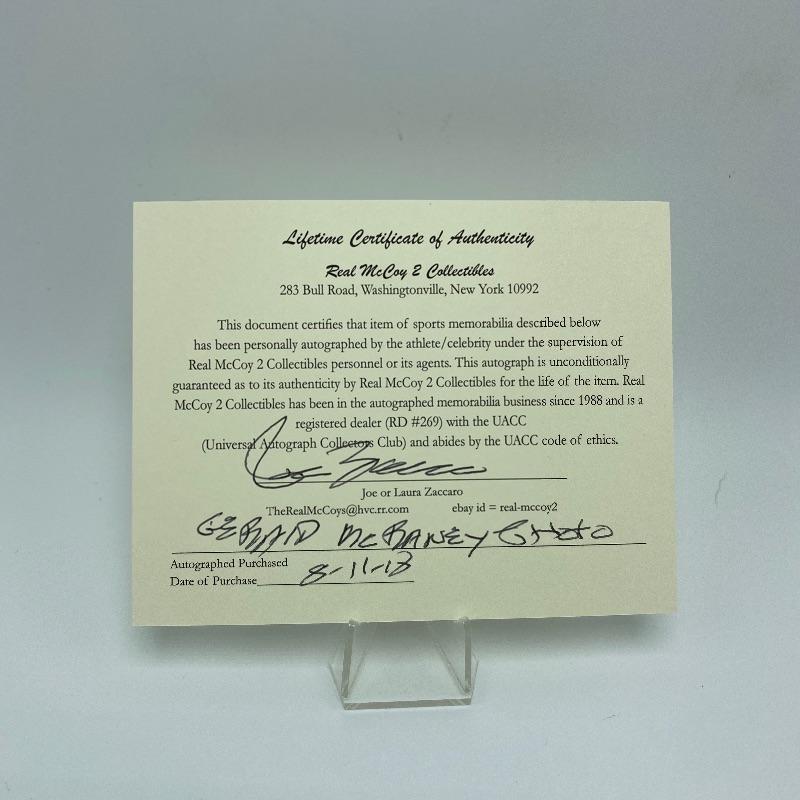 Lifetime Certificate of Authenticity
Real McCoy 2 Collectibles
283 Bull Road, Washingtonville, New York 10992
This document certifies that item of sports memorabilia described below
has been personally autographed by the athlete/celebrity under the supervision of
Real McCoy 2 Collectibles personnel or its agents. This autograph is unconditionally
guaranteed as to its authenticity by Real McCoy 2 Collectibles for the life of the item. Real
McCoy 2 Collectibles has been in the autographed memorabilia business since 1988 and is a
registered dealer (RD #269) with the UACC
(Universal Autograph Collectors Club) and abides by the UACC code of ethics.
Joe Zaccaro
Joe or Laura Zaccaro
TheRealMcCoys@hvc.rr.com ebay id = real-mccoy2
GERALD McRANEY
Autographed Purchased
Date of Purchase 8-11-18